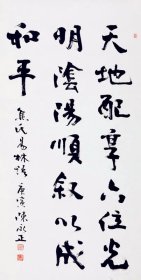 天地配享六位光
明陰陽順叙以成
和平
焦氏易林語 庚寅陳永正